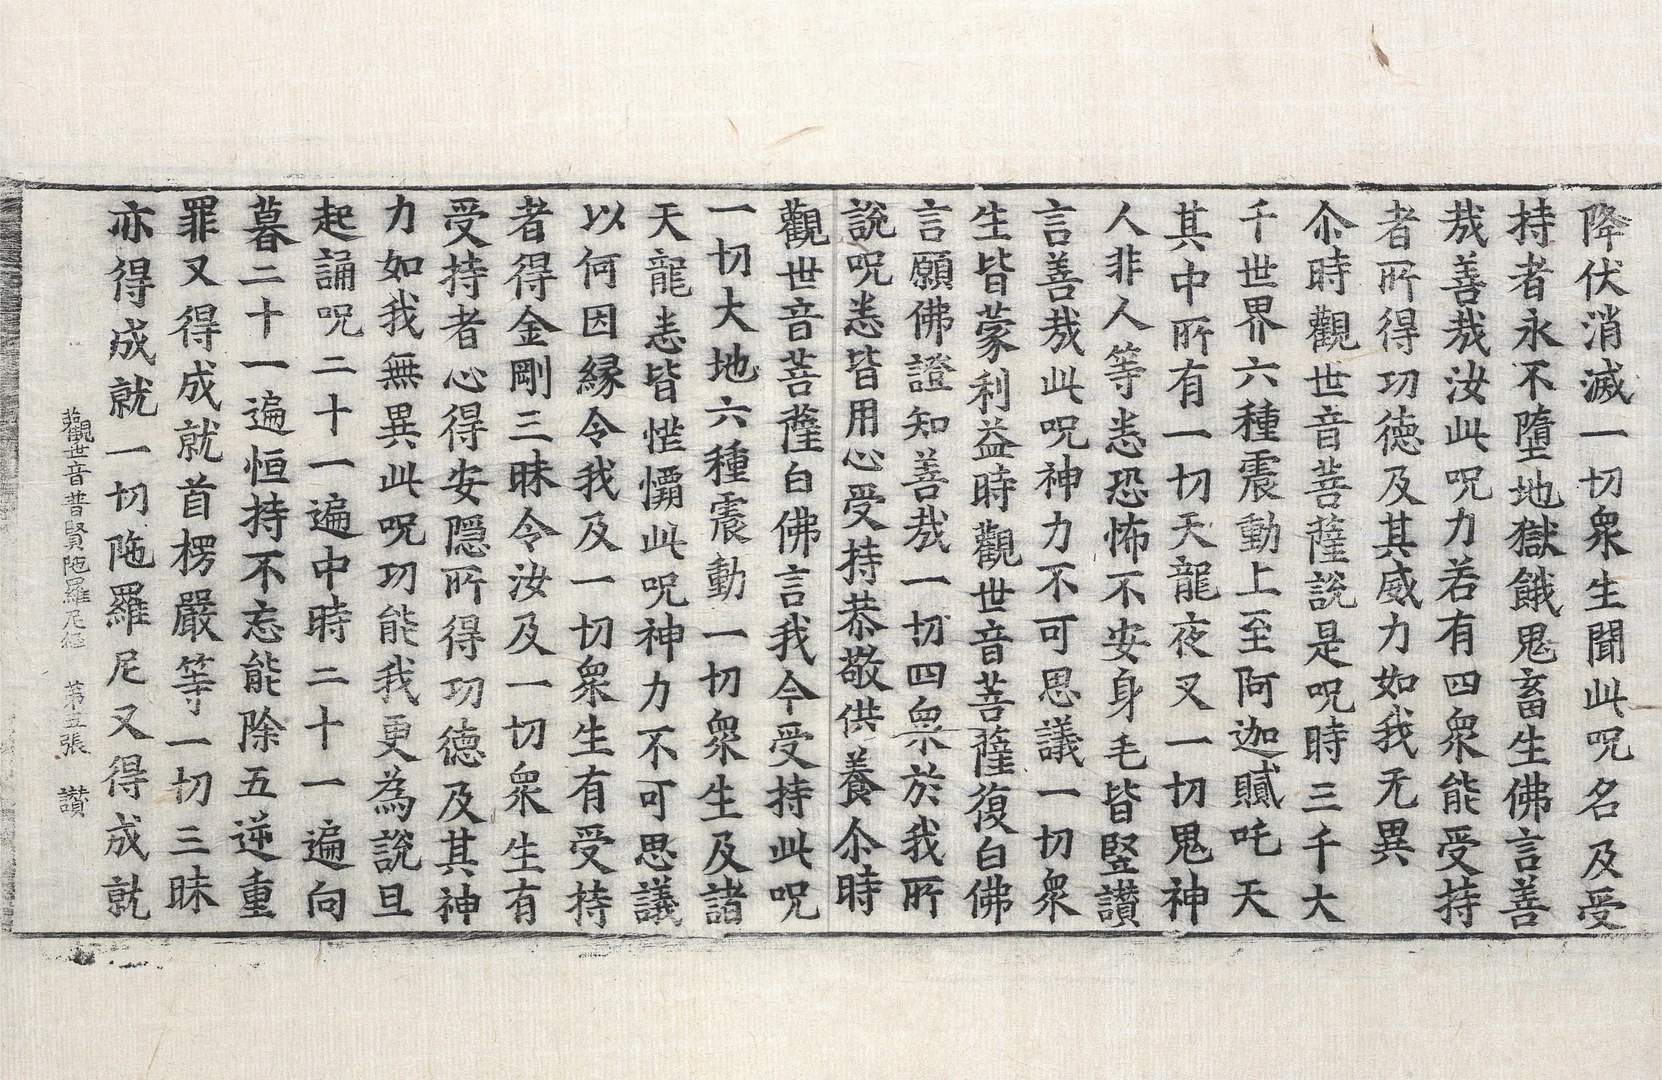 降伏消滅一切衆生聞此呪名及受
持者永不墮地獄餓鬼畜生佛言善
哉善哉汝此呪力若有四衆能受持
者所得功德及其威力如我无異
尒時觀世音菩薩說是呪時三千大
千世界六種震動上至阿迦膩吒天
其中所有一切天龍夜叉一切鬼神
人非人等悉恐怖不安身毛皆竪讃
言善哉此呪神力不可思議一切衆
生皆蒙利益時觀世音菩薩復白佛
言願佛證知善哉一切四衆於我所
說呪悉皆用心受持恭敬供養尒時
觀世音菩薩白佛言我今受持此呪
一切大地六種震動一切衆生及諸
天龍悉皆恾懼此呪神力不可思議
以何因緣令我及一切衆生有受持
者得金剛三昧令汝及一切衆生有
受持者心得安隱所得功德及其神
力如我無異此呪功能我更為說旦
起誦呪二十一遍中時二十一遍向
暮二十一遍恒持不忘能除五逆重
罪又得成就首楞嚴等一切三昧
亦得成就一切陁羅尼又得成就
觀世音普賢陁羅尼經 第五張 讃